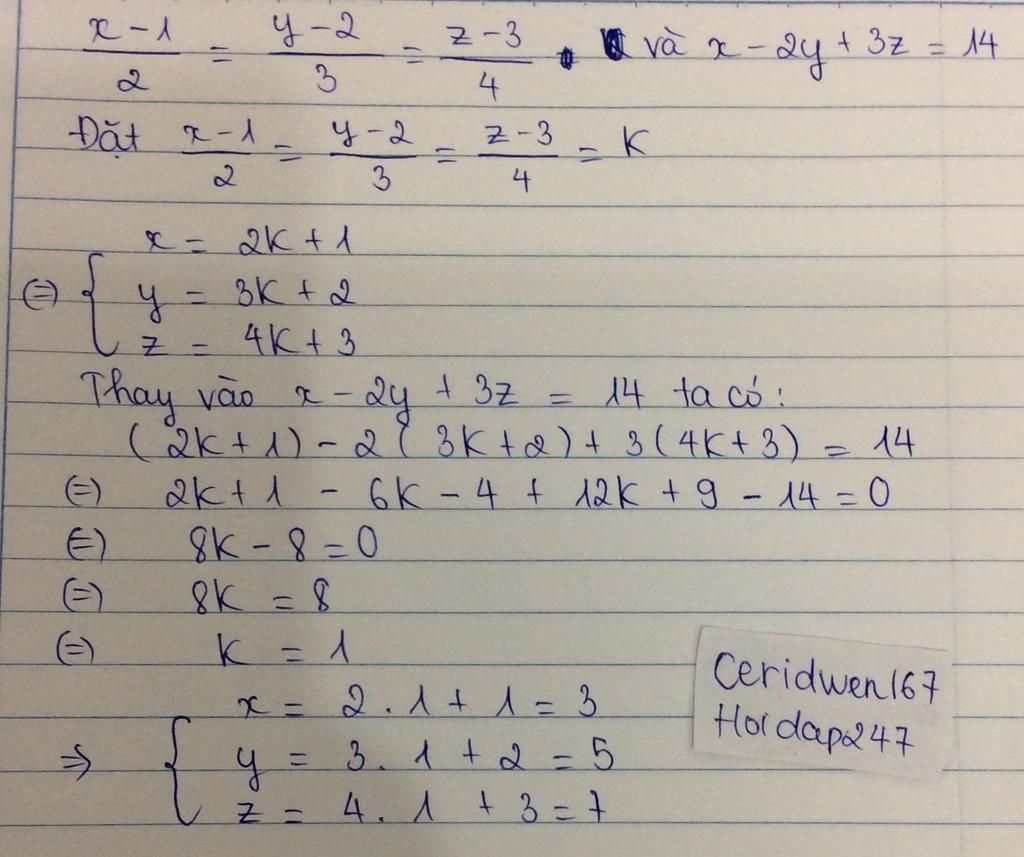 x - 1 / 2 = y - 2 / 3 = z - 3 / 4 . và x - 2y + 3z = 14
Đặt x - 1 / 2 = y - 2 / 3 = z - 3 / 4 = K
x = 2K + 1
(=) { y = 3K + 2
z = 4K + 3
Thay vào x - 2y + 3z = 14 ta có:
(2K + 1) - 2(3K + 2) + 3(4K + 3) = 14
(=) 2K + 1 - 6K - 4 + 12K + 9 - 14 = 0
(=) 8K - 8 = 0
(=) 8K = 8
(=) K = 1
x = 2 . 1 + 1 = 3
=> { y = 3 . 1 + 2 = 5
z = 4 . 1 + 3 = 7
Ceridwen167
Hoidap247